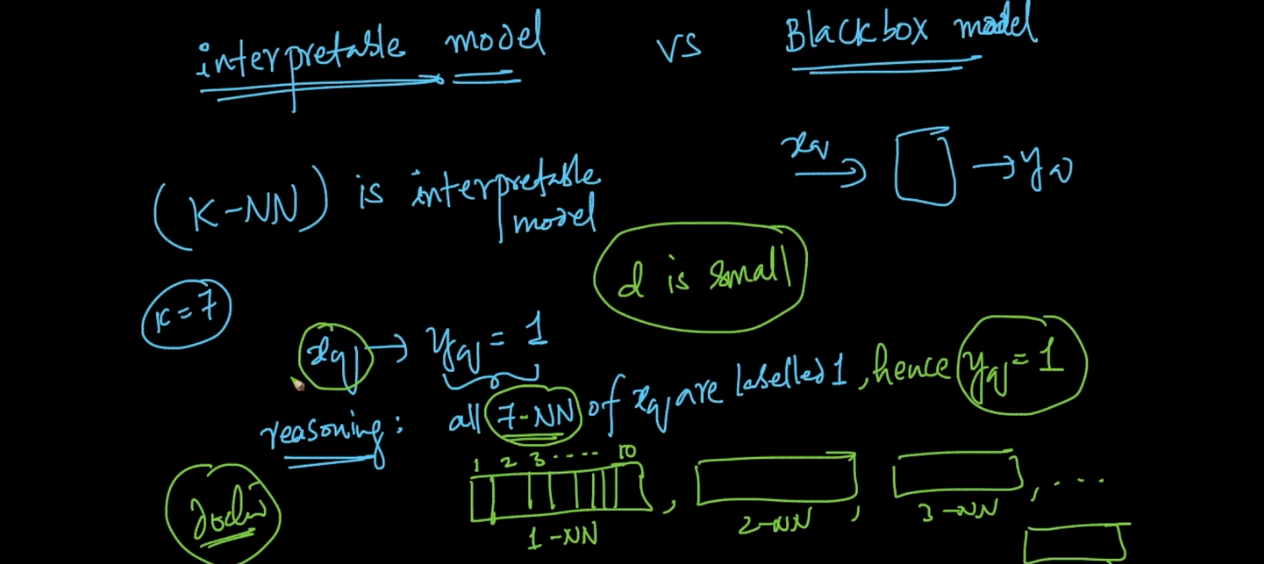 interpretable model vs Blackbox model
xq → → yq
(K-NN) is interpretable model
d is small
K=7
xq → yq = 1
reasoning: all 7-NN of xq are labelled 1, hence yq = 1
1 2 3 .... 10
1-NN, 2-NN, 3-NN, ...